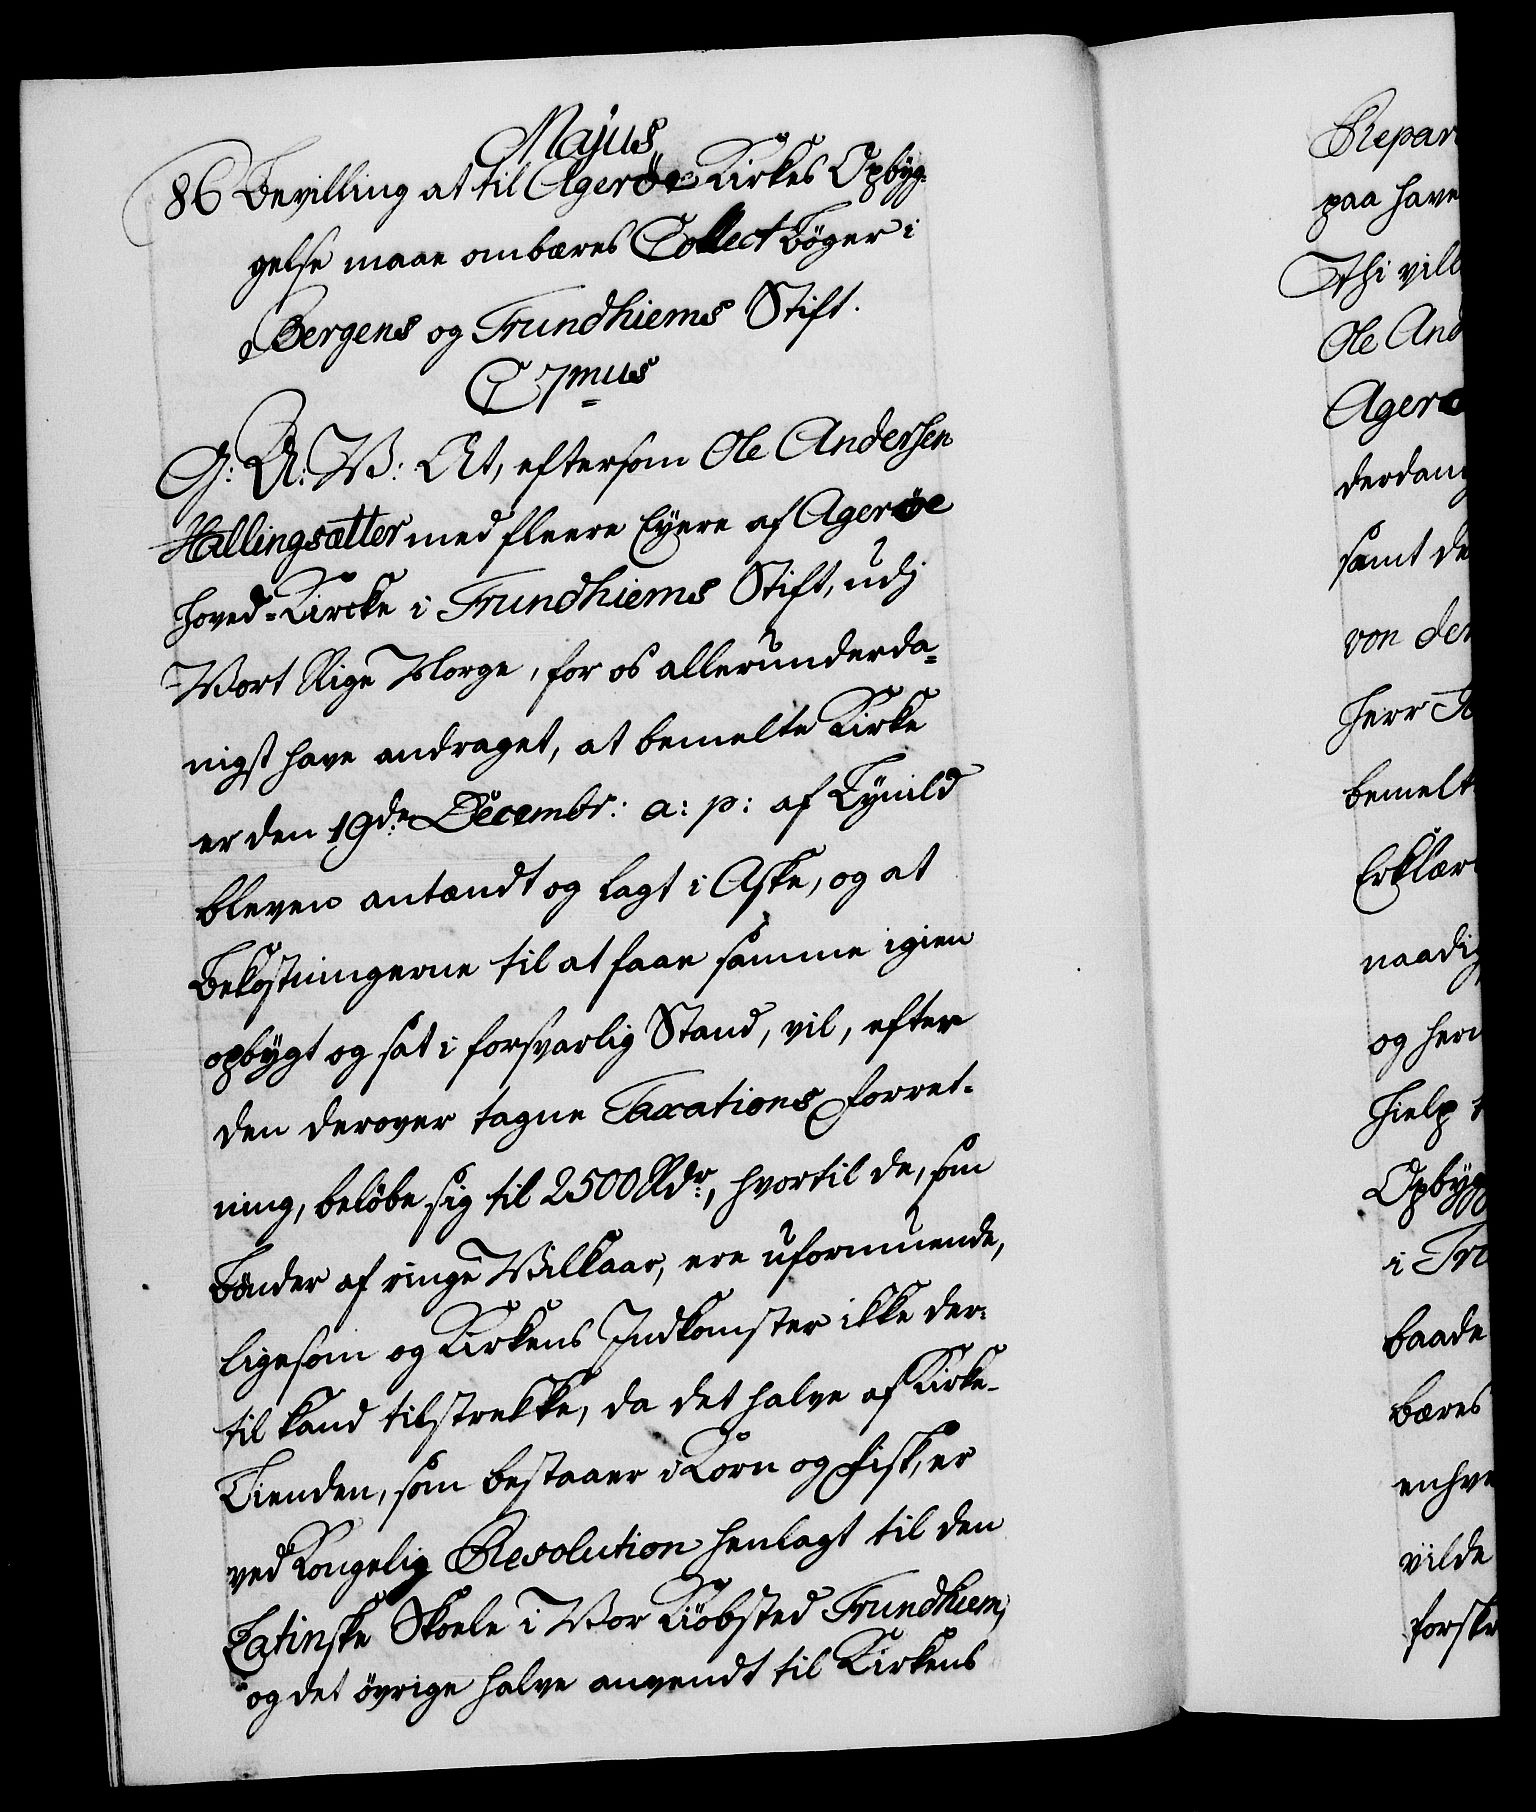 Majus
86 Bevilling at til Agerøe Kirkes Opbyg-
gelse maae ombæres Collect Bøger i
Bergens og Trundhiems Stift.
C 7mus
G: A: V: At, eftersom Ole Andersen
Hallingsætter med fleere Eyere af Agerøe
Hoved-Kircke i Trundhiems Stift, udj
Vort Rige Norge, for os allerunderda-
nigst have andraget, at bemelte Kirke
er den 19de Decembr: a: p: af Lynild
bleven antændt og lagt i Aske, og at
Bekostningerne til at faae samme igien
opbygt og sat i forsvarlig Stand, vil, efter
den derover tagne Taxations Forret-
ning, beløbe sig til 2500 Rdr, hvortil de, som
Bønder af ringe Vilkaar, ere uformuende,
ligesom og Kirkens Indkomster ikke der-
til kand tilstrekke, da det halve af Kirke-
Tienden, som bestaaer i Korn og Fisk, er
ved Kongelig Resolution henlagt til den
Latinske Skoele i Vor Kiøbsted Trundhiem,
og det øvrige halve anvendt til Kirkens
Repar
paa have
Thi vil
Ole And
Agerø
derdani
samt de
von der
Herr
bemelt
Erklær
naadig
og her
Hielp
Opbyg
i Tru
baade
bæres
enhve
vilde
forskr